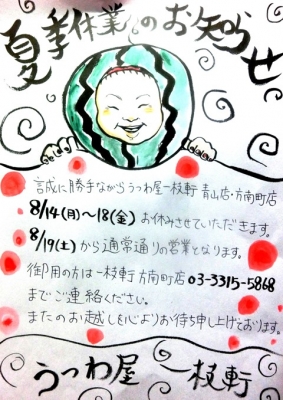 夏季休業のお知らせ
誠に勝手ながらうつわ屋一枝軒 青山店・方南町店
8/14(月)〜18(金) お休みさせていただきます。
8/19(土)から通常通りの営業となります。
御用の方は一枝軒 方南町店 03-3315-5868
までご連絡ください。
またのお越しを心よりお待ち申し上げております。
うつわ屋 一枝軒